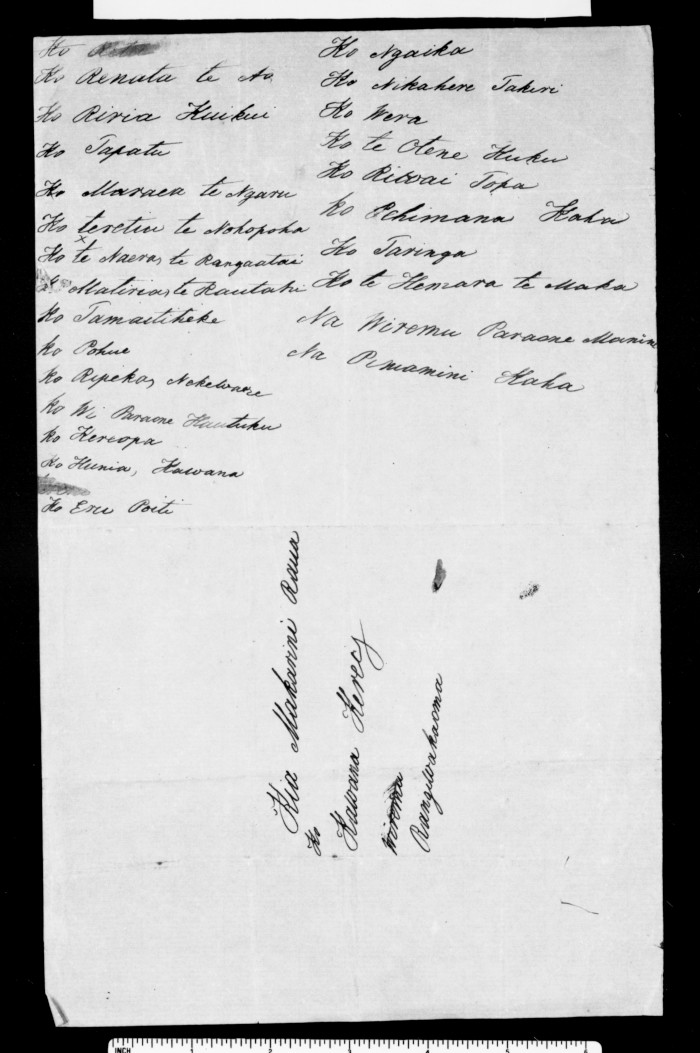 Ko
Ko Renata te Ao
Ko Riria Kuikui
Ko Tapatu
Ko Maraea te Ngaru
Ko teretiu te Nohopoha
Ko te Naera, te Rangaatai
Matiria, te Rautahi
Ko Tamaitiheke
Ko Pohue
Ko Ripeka,
Ko Wi Paraone Hautuku
Ko Kereopa
Ko Hunia, Kawana
Ko Eru Poiti
Ko Ngaika
Ko Nikahere Takiri
Ko Wera
Ko te Otene Kuku
Ko Riwai Topa
Ko Echimana Kaha
Ko Taringa
Ko te Hemara te Maka
Na Wiremu Paraone
Na Pimamini Kaha
Kia Makarini Raua
Ko
Kawana Kerei
Wiremu
Rangiwakaoma
INCH 1 2 3 4 5 6